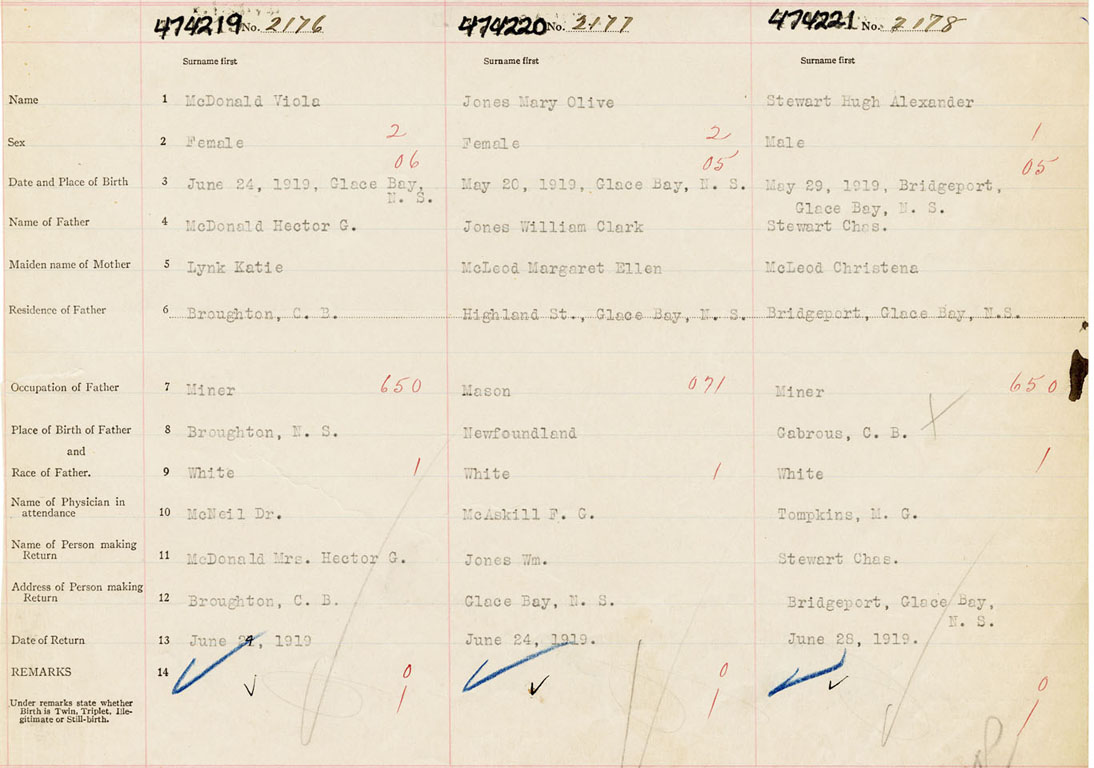 474219 No. 2176 474220 No. 2177 474221 No. 2178
Surname first Surname first Surname first
Name 1 McDonald Viola Jones Mary Olive Stewart Hugh Alexander
2 2 1
Sex 2 Female Female Male
06 05 05
Date and Place of Birth 3 June 24, 1919, Glace Bay, May 20, 1919, Glace Bay, N. S. May 29, 1919, Bridgeport,
N. S. Glace Bay, N. S.
Name of Father 4 McDonald Hector G. Jones William Clark Stewart Chas.
Maiden name of Mother 5 Lynk Katie McLeod Margaret Ellen McLeod Christena
Residence of Father 6 Broughton, C. B. Highland St., Glace Bay, N. S. Bridgeport, Glace Bay, N.S.
Occupation of Father 7 Miner 650 Mason 071 Miner 650
Place of Birth of Father 8 Broughton, N. S. Newfoundland Gabrous, C. B.
and
Race of Father. 9 White 1 White 1 White 1
Name of Physician in
attendance 10 McNeil Dr. McAskill F. G. Tompkins, M. G.
Name of Person making
Return 11 McDonald Mrs. Hector G. Jones Wm. Stewart Chas.
Address of Person making
Return 12 Broughton, C. B. Glace Bay, N. S. Bridgeport, Glace Bay,
N. S.
Date of Return 13 June , 1919 June 24, 1919. June 28, 1919.
REMARKS 14 0 0 0
1 1 1
Under remarks state whether
Birth is Twin, Triplet, Ille-
gitimate or Still-birth.